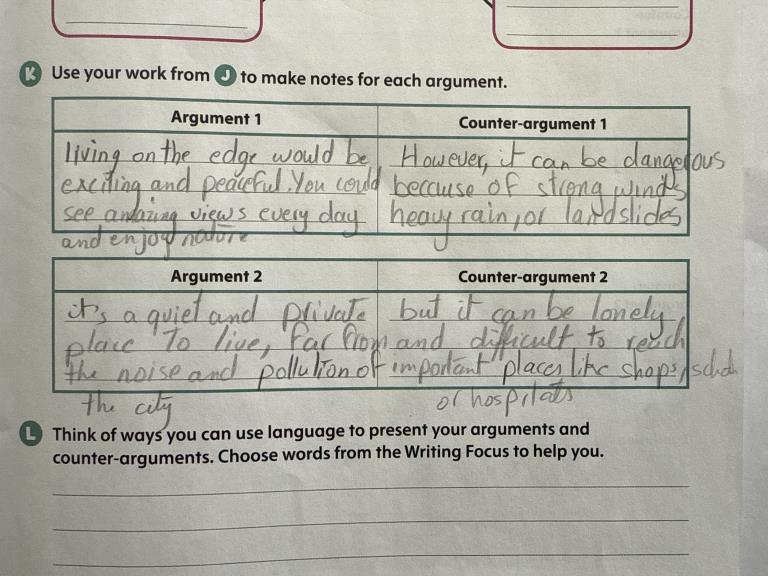 K Use your work from J to make notes for each argument.
Argument 1
living on the edge would be
exciting and peaceful. You could
see amazing views every day
and enjoy nature
Counter-argument 1
However, it can be dangerous
because of strong winds
heavy rain, or landslides
Argument 2
it's a quiet and private
place To live, far from
the noise and pollution of
the city
Counter-argument 2
but it can be lonely
and difficult to reach
important places like shops,
or hospitals
L Think of ways you can use language to present your arguments and
counter-arguments. Choose words from the Writing Focus to help you.